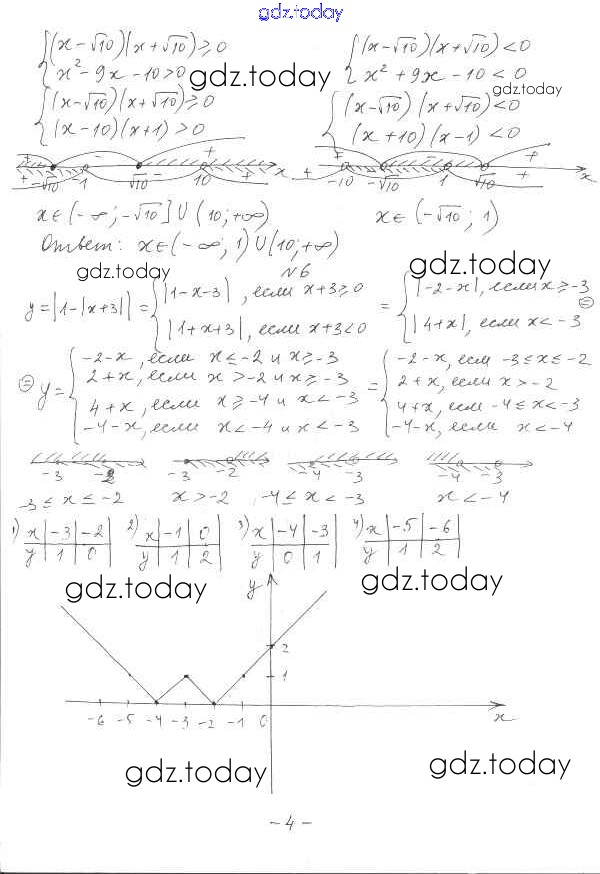 gdz.today
{(x-√10)(x+√10)≥0 {(x-√10)(x+√10)<0
{x²-9x-10>0 {x²+9x-10<0
gdz.today gdz.today
{(x-√10)(x+√10)≥0 {(x-√10)(x+√10)<0
{(x-10)(x+1)>0 {(x+10)(x-1)<0
+ - + - + x + - + - + x
-√10 -1 √10 10 -10 -√10 1 √10
x∈(-∞;-√10]∪(10;+∞) x∈(-√10;1)
Ответ: x∈(-∞;1)∪(10;+∞)
gdz.today gdz.today
N6
y=|1-|x+3||={|1-x-3|, если x+3≥0 ={|-2-x|, если x≥-3 ⊜
{|1+x+3|, если x+3<0 {|4+x|, если x<-3
⊜ y={-2-x, если x≤-2 и x≥-3 ={-2-x, если -3≤x≤-2
{2+x, если x>-2 и x≥-3 {2+x, если x>-2
{4+x, если x≥-4 и x<-3 {4+x, если -4≤x<-3
{-4-x, если x<-4 и x<-3 {-4-x, если x<-4
-3 -2 -3 -2 -4 -3 -4 -3
-3≤x≤-2 x>-2 -4≤x<-3 x<-4
1) x|-3|-2| 2) x|-1|0| 3) x|-4|-3| 4) x|-5|-6|
y|1|0| y|1|2| y|0|1| y|1|2|
gdz.today gdz.today
y
2
1
-6 -5 -4 -3 -2 -1 0 x
gdz.today gdz.today
-4-